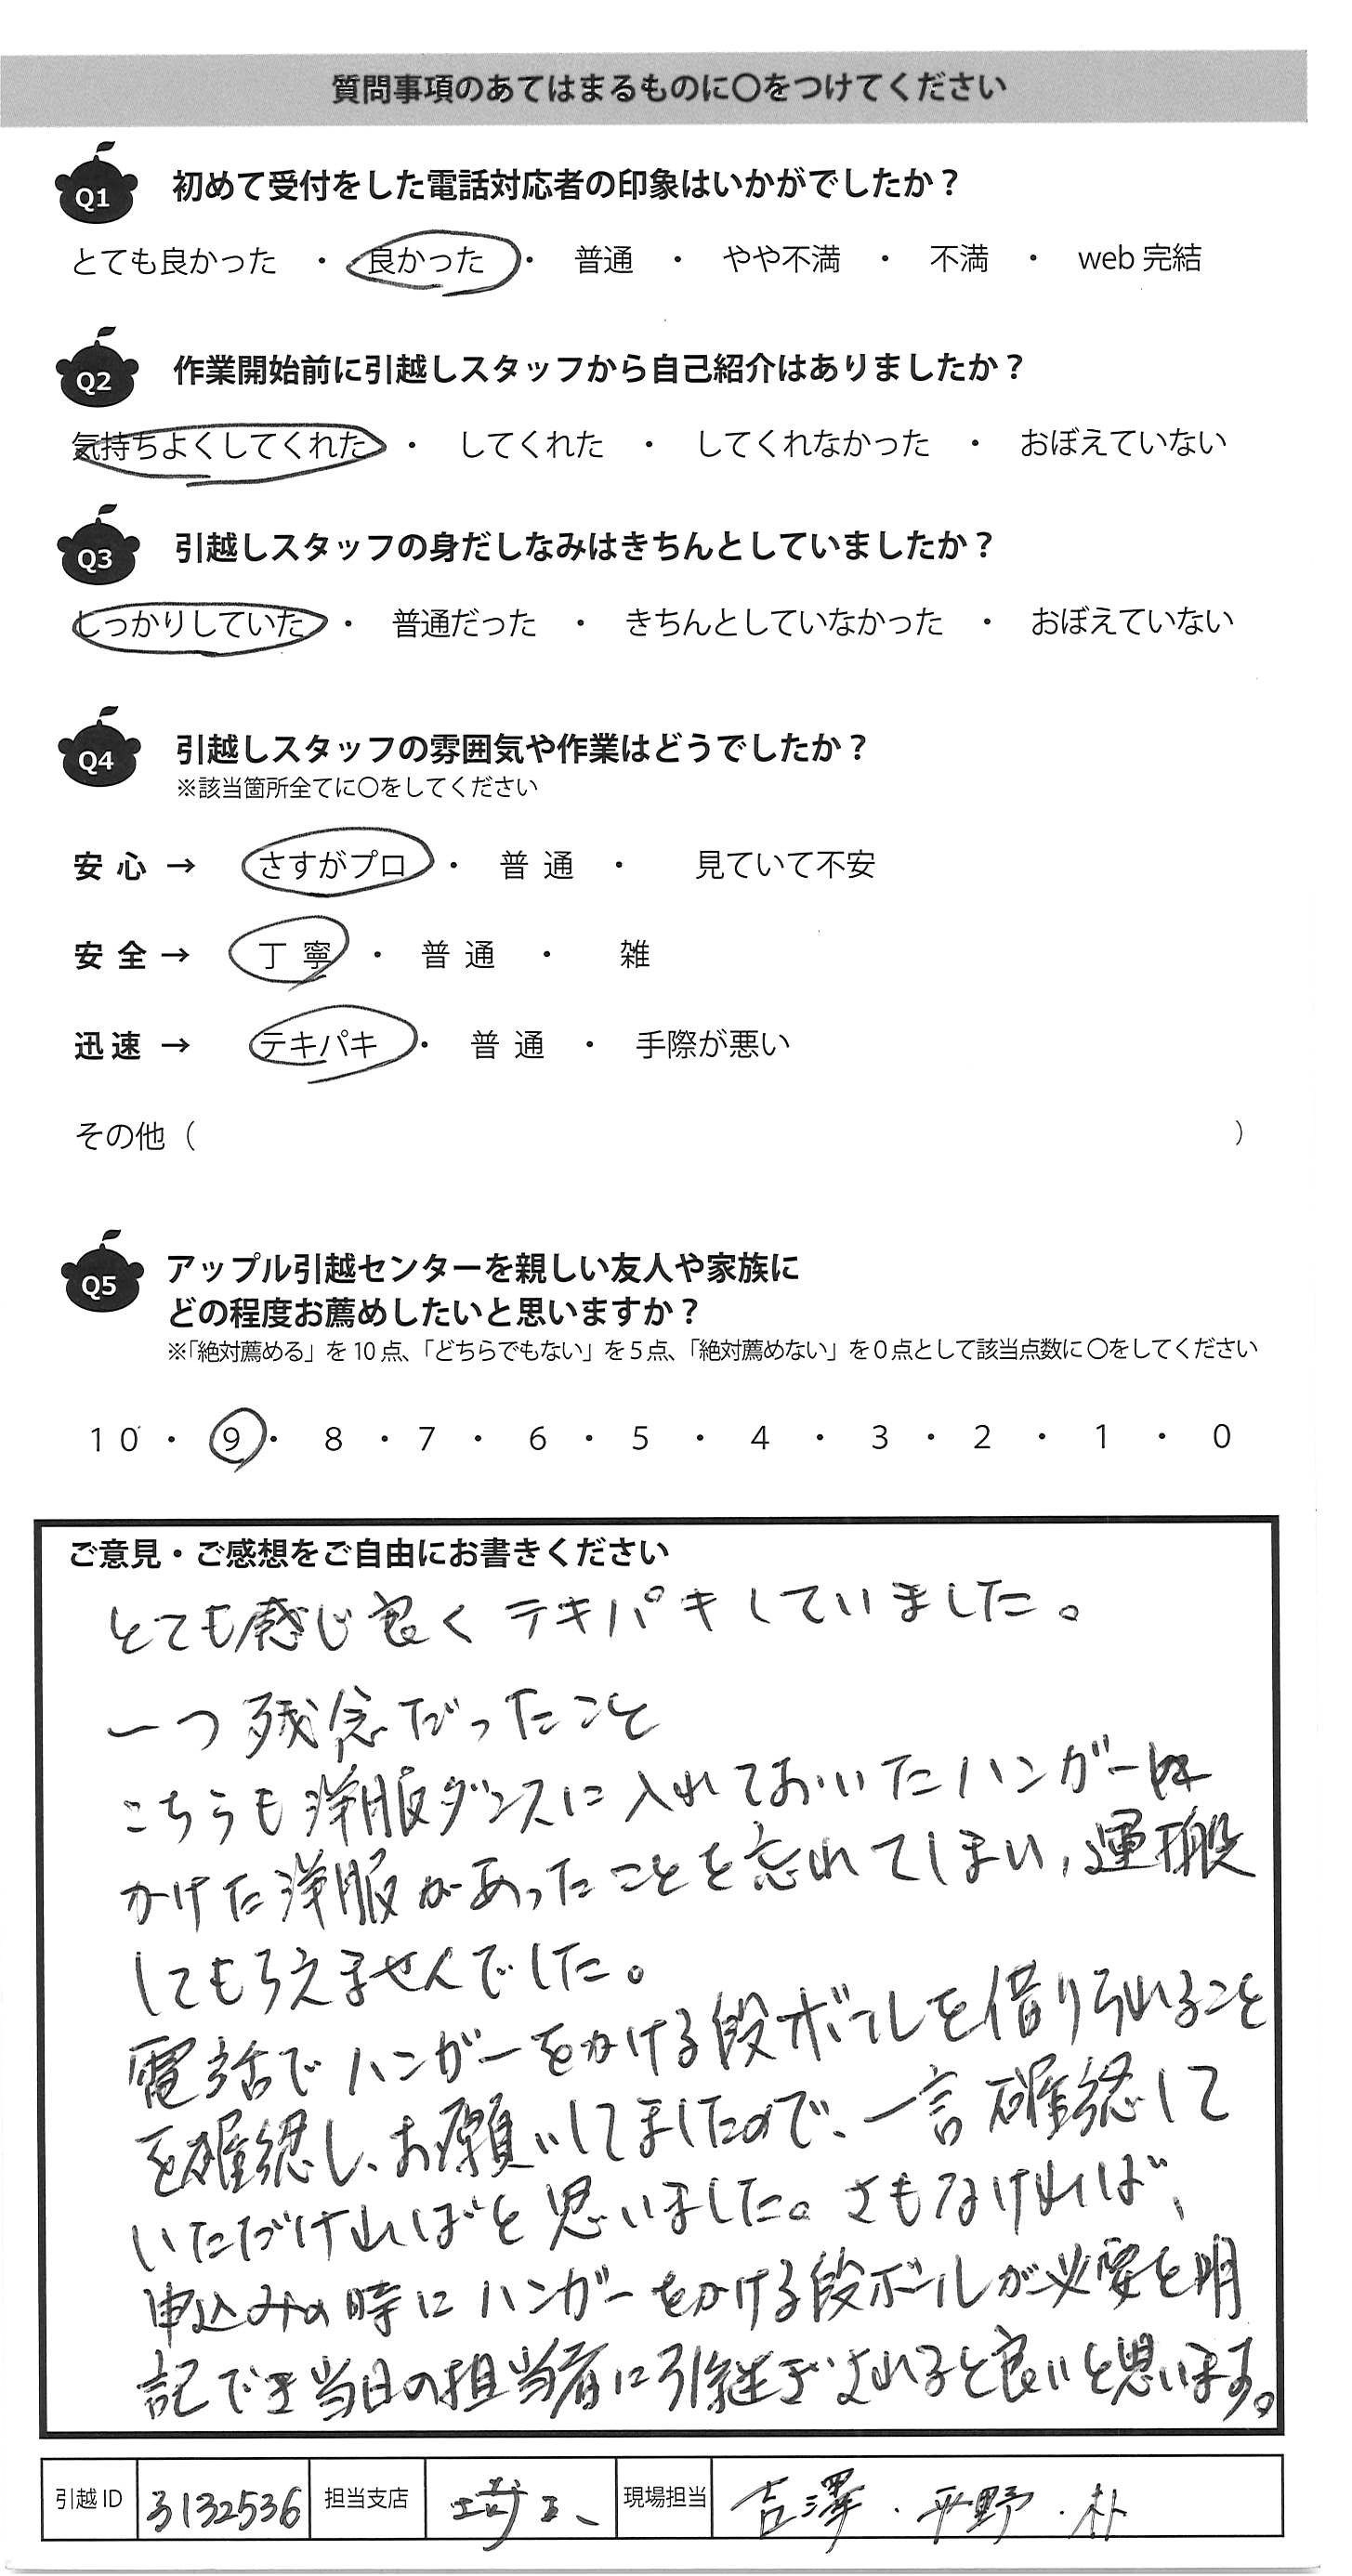 質問事項のあてはまるものに〇をつけてください
Q1 初めて受付をした電話対応者の印象はいかがでしたか？
とても良かった ・ 良かった ・ 普通 ・ やや不満 ・ 不満 ・ web 完結
Q2 作業開始前に引越しスタッフから自己紹介はありましたか？
気持ちよくしてくれた ・ してくれた ・ してくれなかった ・ おぼえていない
Q3 引越しスタッフの身だしなみはきちんとしていましたか？
しっかりしていた ・ 普通だった ・ きちんとしていなかった ・ おぼえていない
Q4 引越しスタッフの雰囲気や作業はどうでしたか？
※該当箇所全てに〇をしてください
安心 → さすがプロ ・ 普通 ・ 見ていて不安
安全 → 丁寧 ・ 普通 ・ 雑
迅速 → テキパキ ・ 普通 ・ 手際が悪い
その他（ ）
Q5 アップル引越センターを親しい友人や家族に
どの程度お薦めしたいと思いますか？
※「絶対薦める」を 10 点、「どちらでもない」を 5 点、「絶対薦めない」を 0 点として該当点数に 〇をしてください
10 ・ 9 ・ 8 ・ 7 ・ 6 ・ 5 ・ 4 ・ 3 ・ 2 ・ 1 ・ 0
ご意見・ご感想をご自由にお書きください
とても感じ良くテキパキしていました。
一つ残念だったこと
こちらも洋服ダンスに入れておいたハンガーに
かけた洋服があったことを忘れてしまい、運搬
してもらえませんでした。
電話でハンガーをかける段ボールを借りられること
を確認し、お願いしてましたので、一言確認して
いただければと思いました。さもなければ、
申込みの時にハンガーをかける段ボールが必要を明
記でき当日の担当者に引継ぎされると良いと思います。
引越 ID 3132536 担当支店 埼玉 現場担当 吉澤・平野・朴